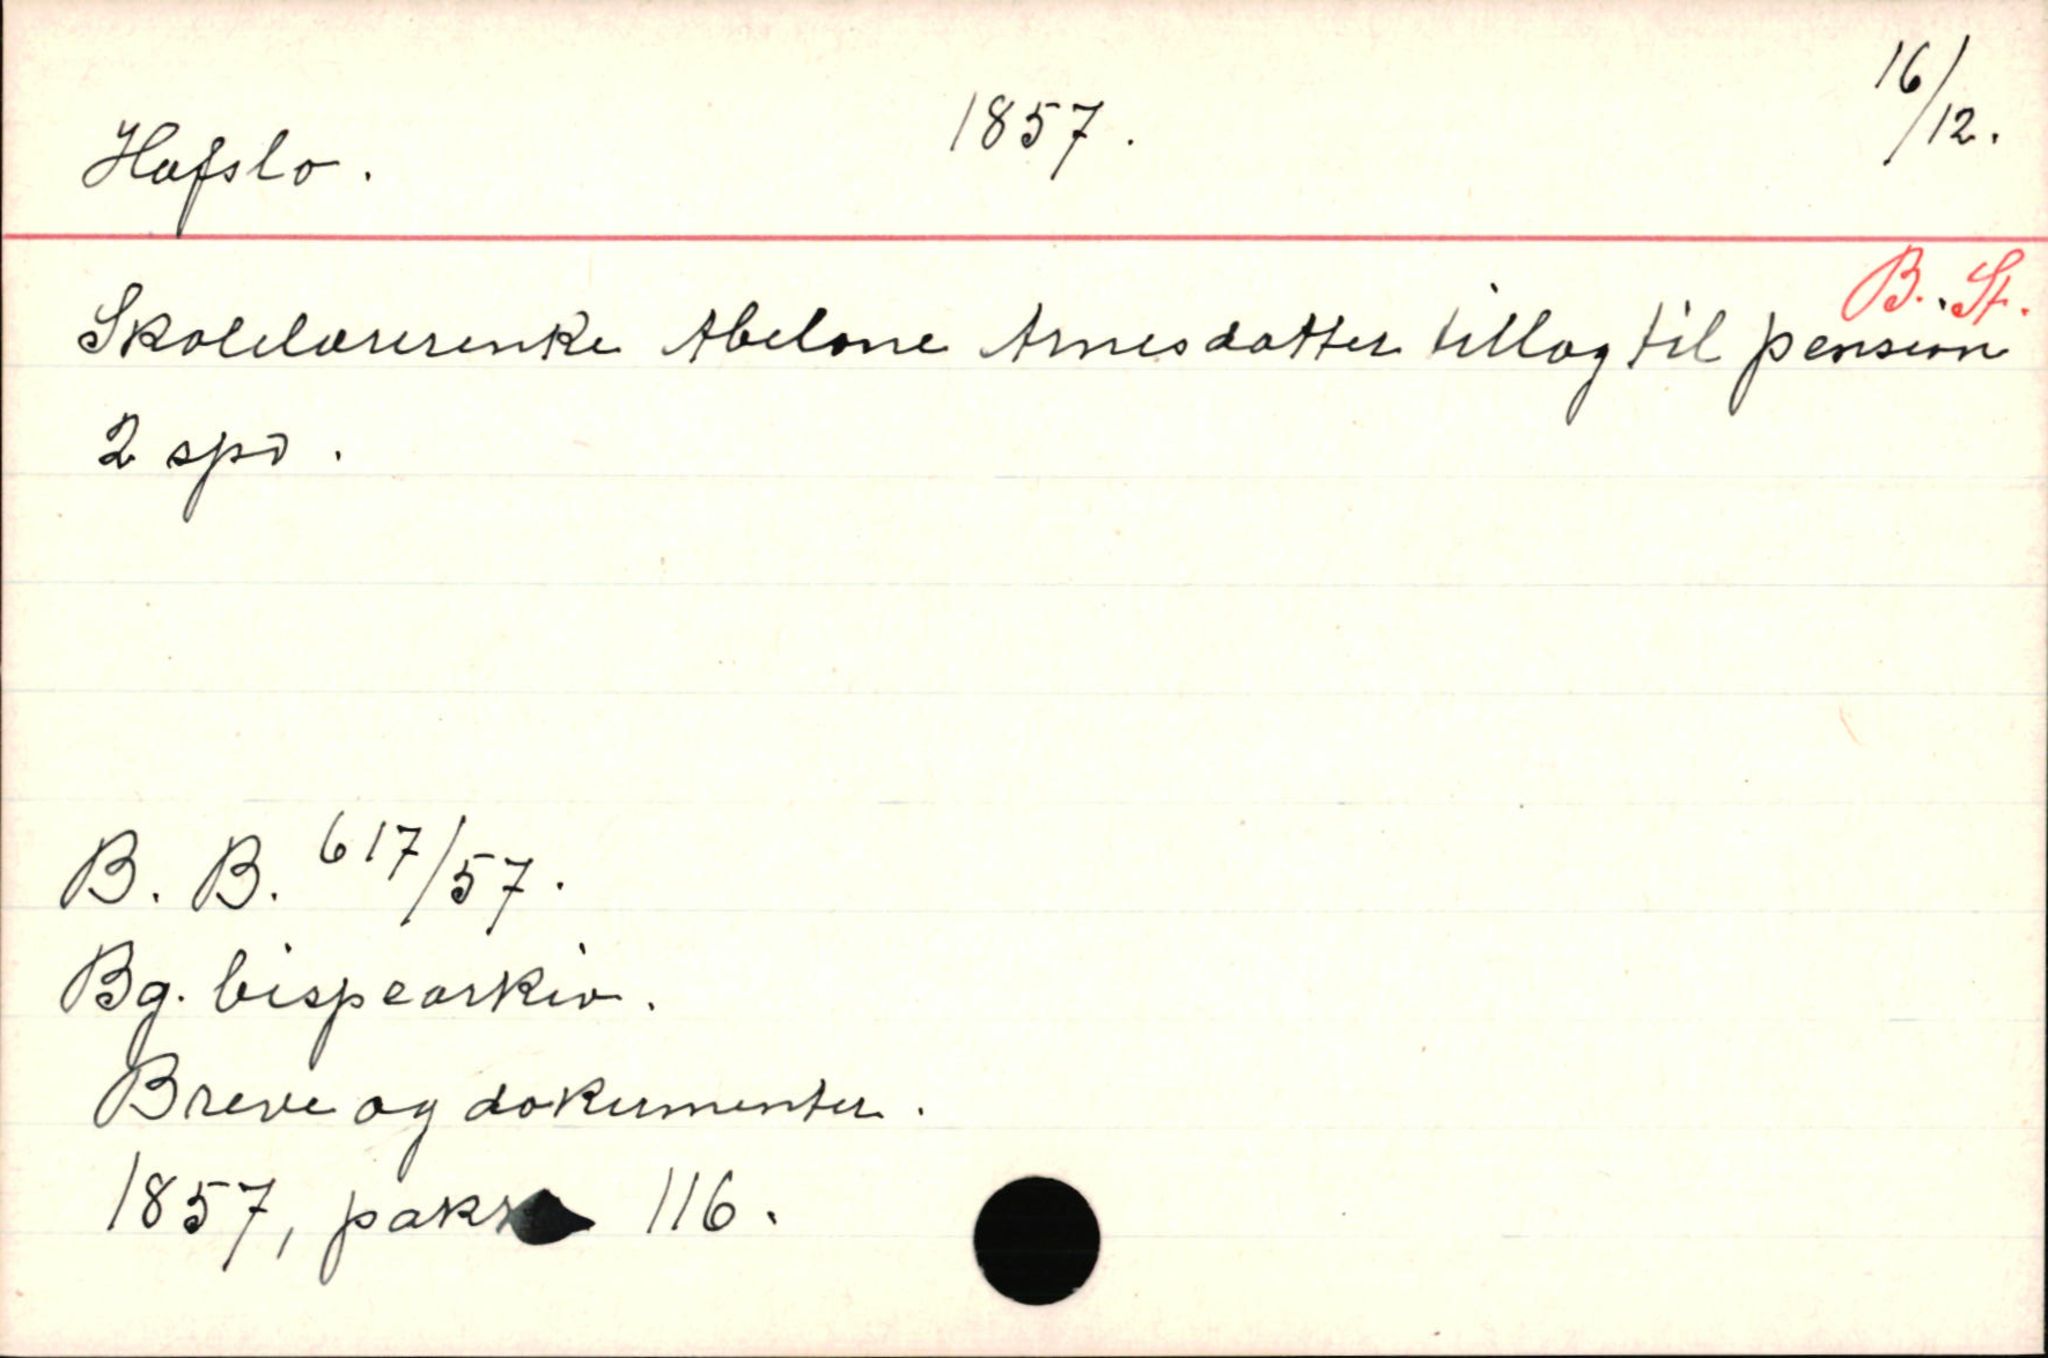 Hafslo. 1857. 16/12.
B. St.
Skolelærerenke Abelone Arnesdatter tillæg til pension
2 spd.
B. B. 617/57.
Bg. bispearkiv.
Breve og dokumenter.
1857, 116.